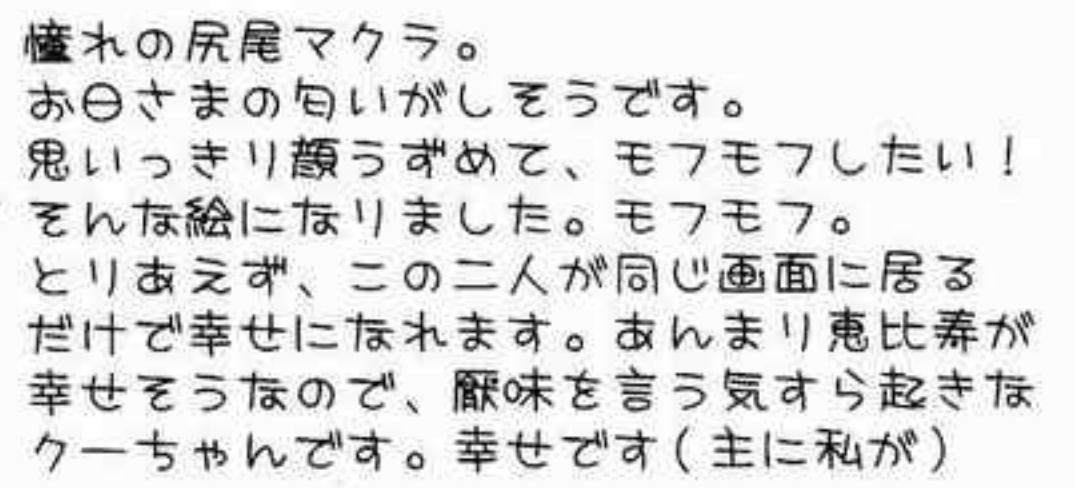 憧れの尻尾マクラ。
お日さまの匂いがしそうです。
思いっきり顔うずめて、モフモフしたい！
そんな絵になりました。モフモフ。
とりあえず、この二人が同じ画面に居る
だけで幸せになれます。あんまり恵比寿が
幸せそうなので、厭味を言う気すら起きな
クーちゃんです。幸せです(主に私が)